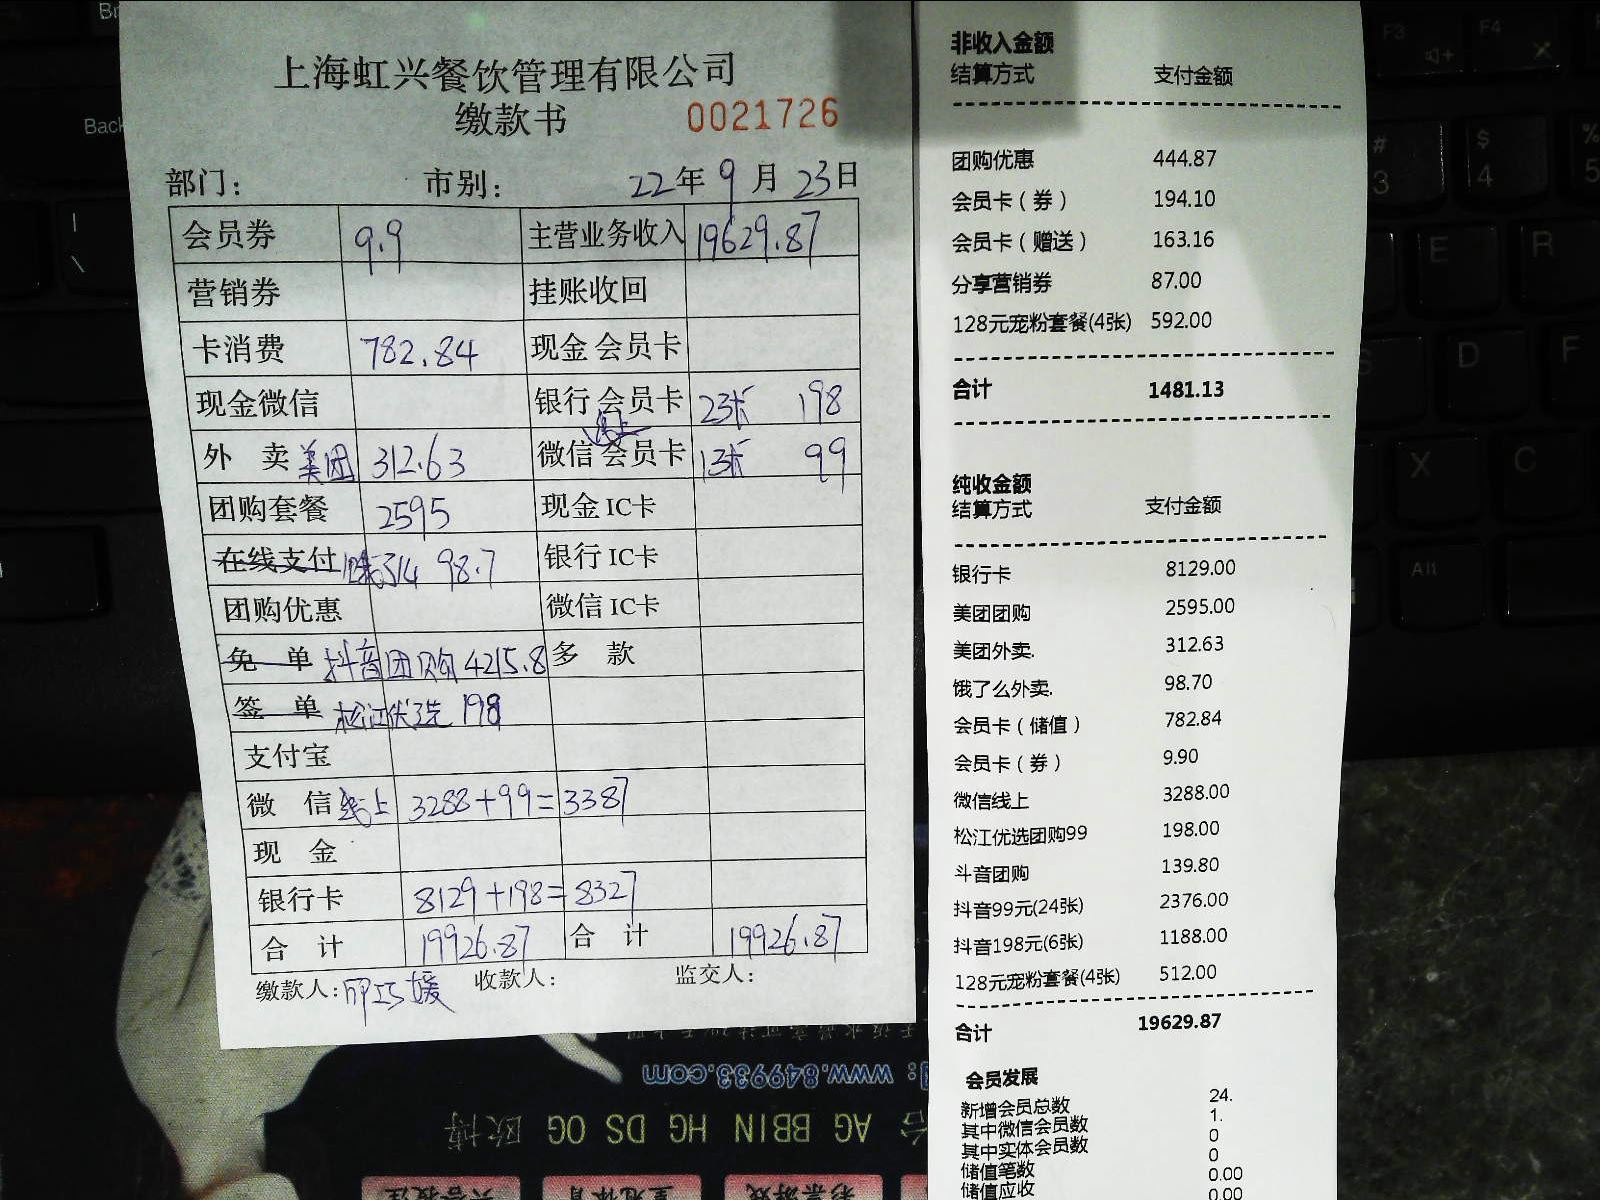 上海虹兴餐饮管理有限公司
缴款书 0021726
部门： 市别： 22年9月23日
会员券 9.9 主营业务收入 19629.87
营销券 挂账收回
卡消费 782.84 现金 会员卡
现金微信 银行 会员卡 23张 198
外 卖 美团 312.63 微信 会员卡 1张 99
团购套餐 2595 现金 IC卡
在线支付 98.7 银行 IC卡
团购优惠 微信 IC卡
免 单 抖音团购 4215.8 多 款
签 单 松江优选 198
支付宝
微 信 线上 3288+99=3387
现 金
银行卡 8129+198=8327
合 计 19926.87 合 计 19926.87
缴款人: 收款人: 监交人:
非收入金额
结算方式 支付金额
团购优惠 444.87
会员卡（券） 194.10
会员卡（赠送） 163.16
分享营销券 87.00
128元宠粉套餐(4张) 592.00
合计 1481.13
纯收金额
结算方式 支付金额
银行卡 8129.00
美团团购 2595.00
美团外卖. 312.63
饿了么外卖. 98.70
会员卡（储值） 782.84
会员卡（券） 9.90
微信线上 3288.00
松江优选团购99 198.00
斗音团购 139.80
抖音99元(24张) 2376.00
抖音198元(6张) 1188.00
128元宠粉套餐(4张) 512.00
合计 19629.87
会员发展
新增会员总数 24.
其中微信会员数 1.
其中实体会员数 0
储值笔数 0
储值应收 0.00
0.00
www.849933.com
AG BBIN HG DS OG 欧博
六合投注 皇冠体育 彩票游戏
Back
F3
F4
#
3
$
4
%
5
E
R
S
D
F
X
C
Alt